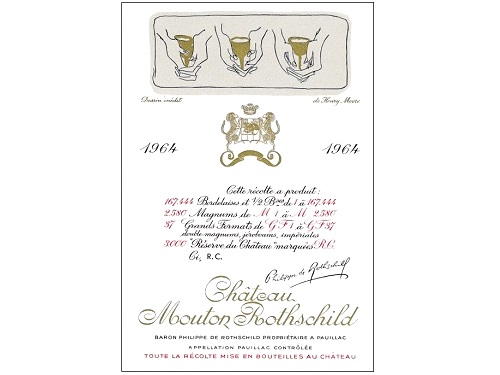 Dessin inédit de Henry Moore
1964 1964
Cette récolte a produit:
167.444 Bordelaises et 1/2 Bses de 1 à 167.444
2.580 Magnums de M 1 à M 2.580
37 Grands Formats de G F 1 à G F 37
double magnums, jeroboams, impériales
3.000 "Réserve du Château" marquées R.C.
Ci, R.C.
Philippe de Rothschild
Château
Mouton Rothschild
BARON PHILIPPE DE ROTHSCHILD PROPRIÉTAIRE A PAUILLAC
APPELLATION PAUILLAC CONTRÔLÉE
TOUTE LA RÉCOLTE MISE EN BOUTEILLES AU CHÂTEAU